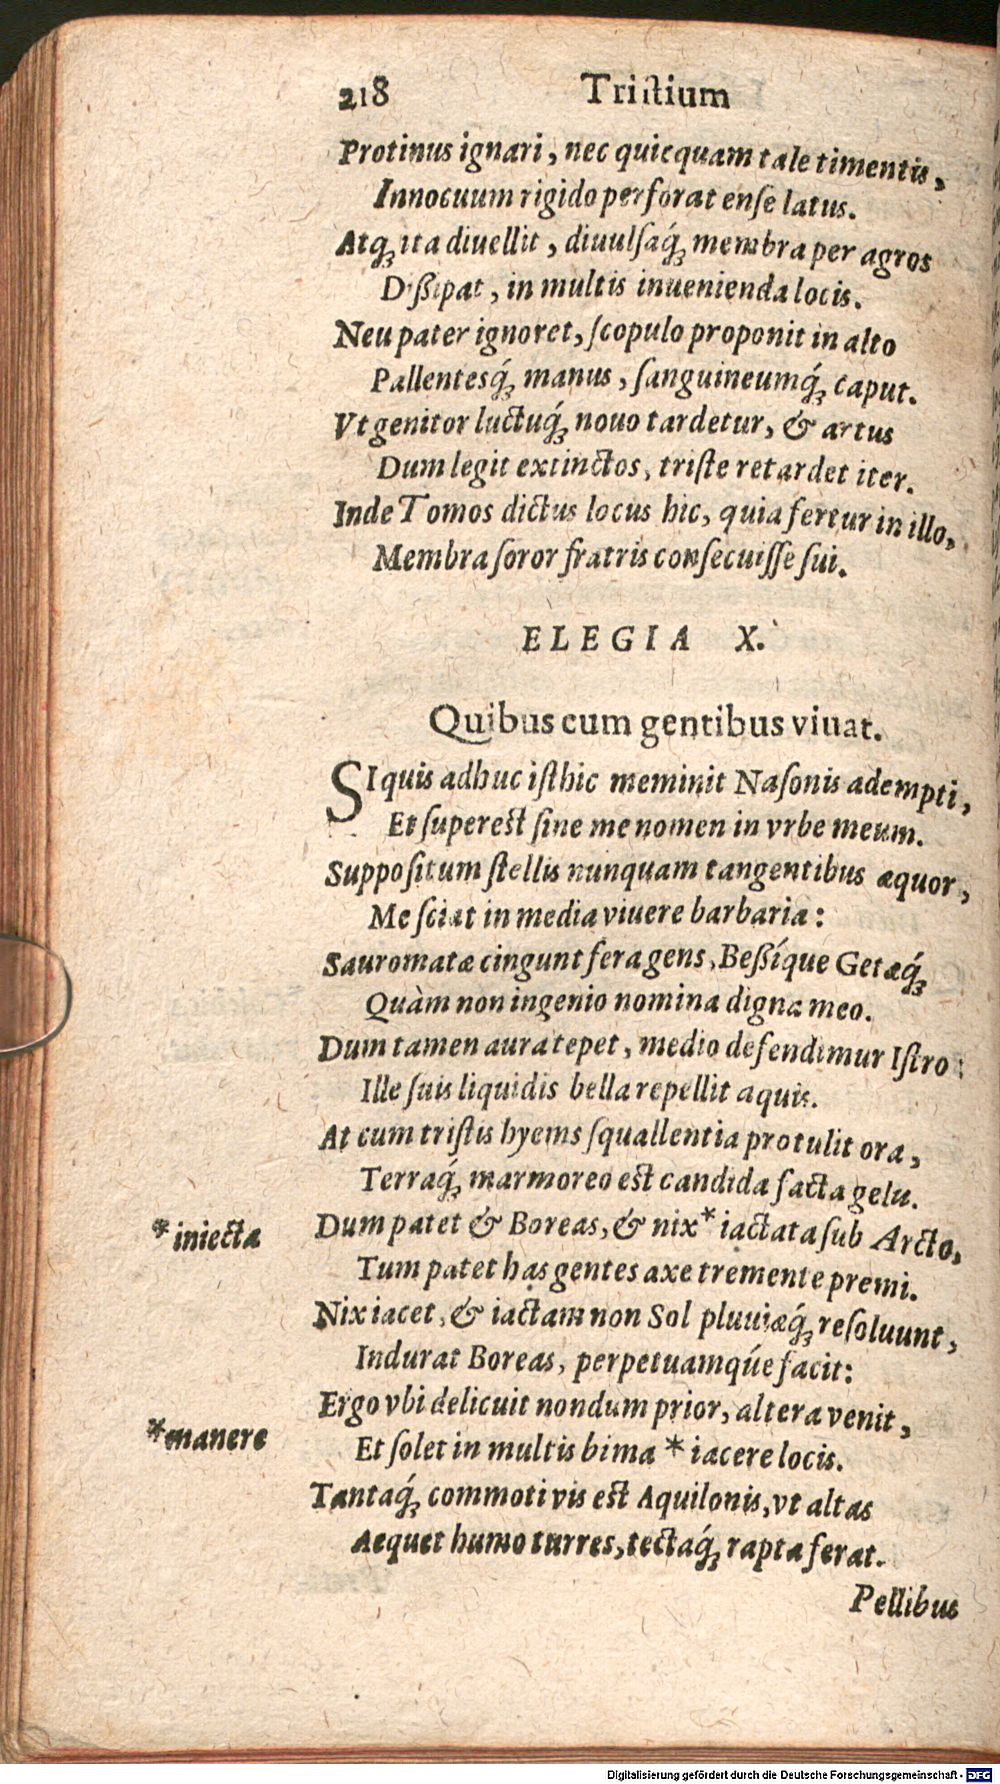 218 Tristium
Protinus ignari, nec quicquam tale timentis,
Innocuum rigido perforat ense latus.
Atq́; ita diuellit, diuulsaq́; membra per agros
Dißipat, in multis inuenienda locis.
Neu pater ignoret, scopulo proponit in alto
Pallentesq́; manus, sanguineumq́; caput.
Vt genitor luctuq́; nouo tardetur, & artus
Dum legit extinctos, triste retardet iter.
Inde Tomos dictus locus hic, quia fertur in illo,
Membra soror fratris consecuisse sui.
ELEGIA X.
Quibus cum gentibus viuat.
SIquis adhuc isthic meminit Nasonis adempti,
Et superest sine me nomen in vrbe meum.
Suppositum stellis nunquam tangentibus æquor,
Me sciat in media viuere barbaria:
Sauromatæ cingunt fera gens, Beßíque Getæq́;
Quàm non ingenio nomina digna meo.
Dum tamen aura tepet, medio defendimur Istro:
Ille suis liquidis bella repellit aquis.
At cum tristis hyems squallentia protulit ora,
Terraq́; marmoreo est candida facta gelu.
* iniecta Dum patet & Boreas, & nix * iactata sub Arcto,
Tum patet has gentes axe tremente premi.
Nix iacet, & iactam non Sol pluuiæq́; resoluunt,
Indurat Boreas, perpetuamqúe facit:
Ergo vbi delicuit nondum prior, altera venit,
* manere Et solet in multis bima * iacere locis.
Tantaq́; commoti vis est Aquilonis, vt altas
Aequet humo turres, tectaq́; rapta ferat.
Pellibus
Digitalisierung gefördert durch die Deutsche Forschungsgemeinschaft - DFG